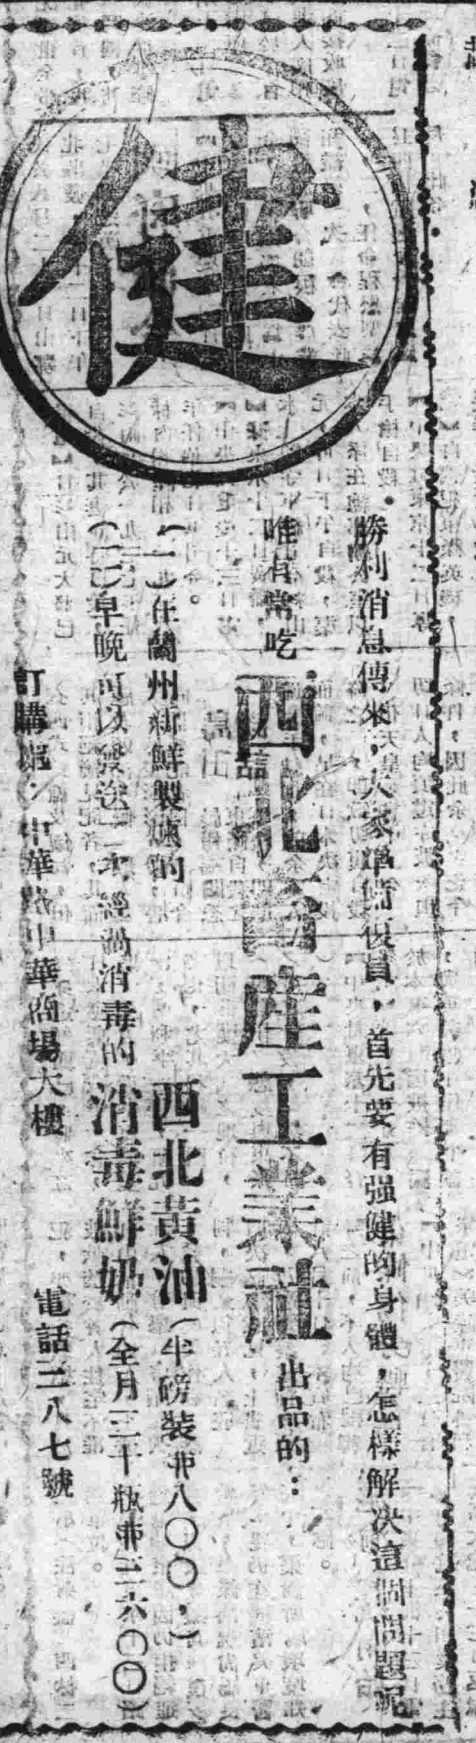 健
勝利消息傳來，大家準備復員，首先要有强健的身體，怎樣解决這個問題呢
唯有常吃 西北畜産工業社 出品的：
（一）在蘭州新鮮製煉的 西北黃油（半磅裝 八〇〇，）
（二）早晚可以發送二次經過消毒的 消毒鮮奶（全月三十瓶 三六〇〇）
訂購處：中華路中華商場大樓 電話三八七號